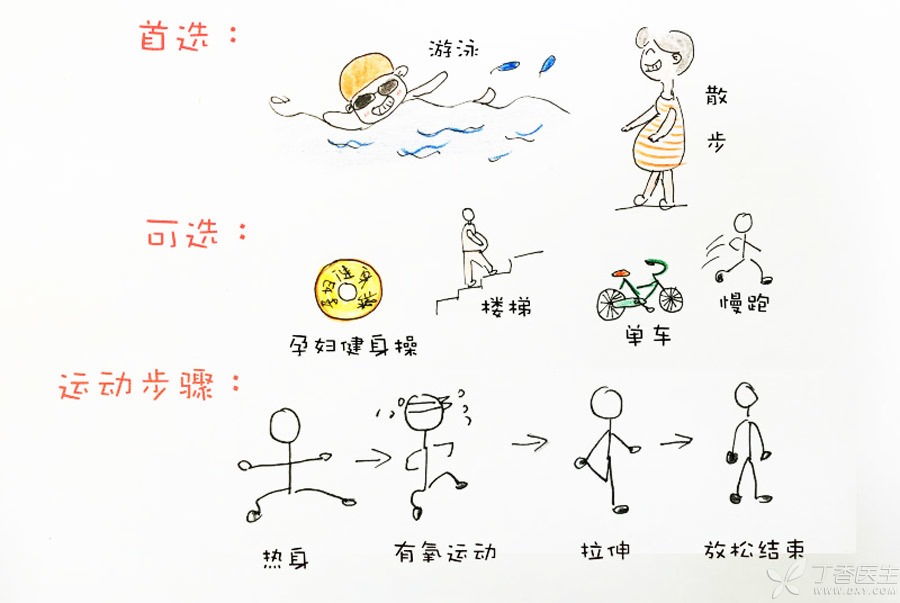 首选：
游泳
散步
可选：
孕妇健身操
孕妇健身操
楼梯
单车
慢跑
运动步骤：
热身
有氧运动
拉伸
放松结束
丁香医生
WWW.DXY.COM